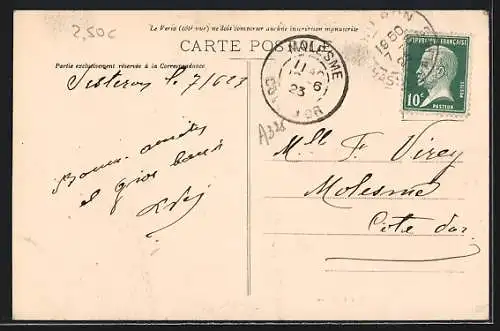 2,50c
Le Verso (côté vue) ne doit comporter aucune inscription manuscrite
CARTE POSTALE
Partie exclusivement réservée à la Correspondance
Sisteron le 7/6 23
Bonnes amitiés
et gros baisers
MOLESME
11
6
23
COTE D'OR
RÉPUBLIQUE FRANÇAISE
10c
POSTES
PASTEUR
A328
Mlle F. Virey
Molesme
Côte d'or